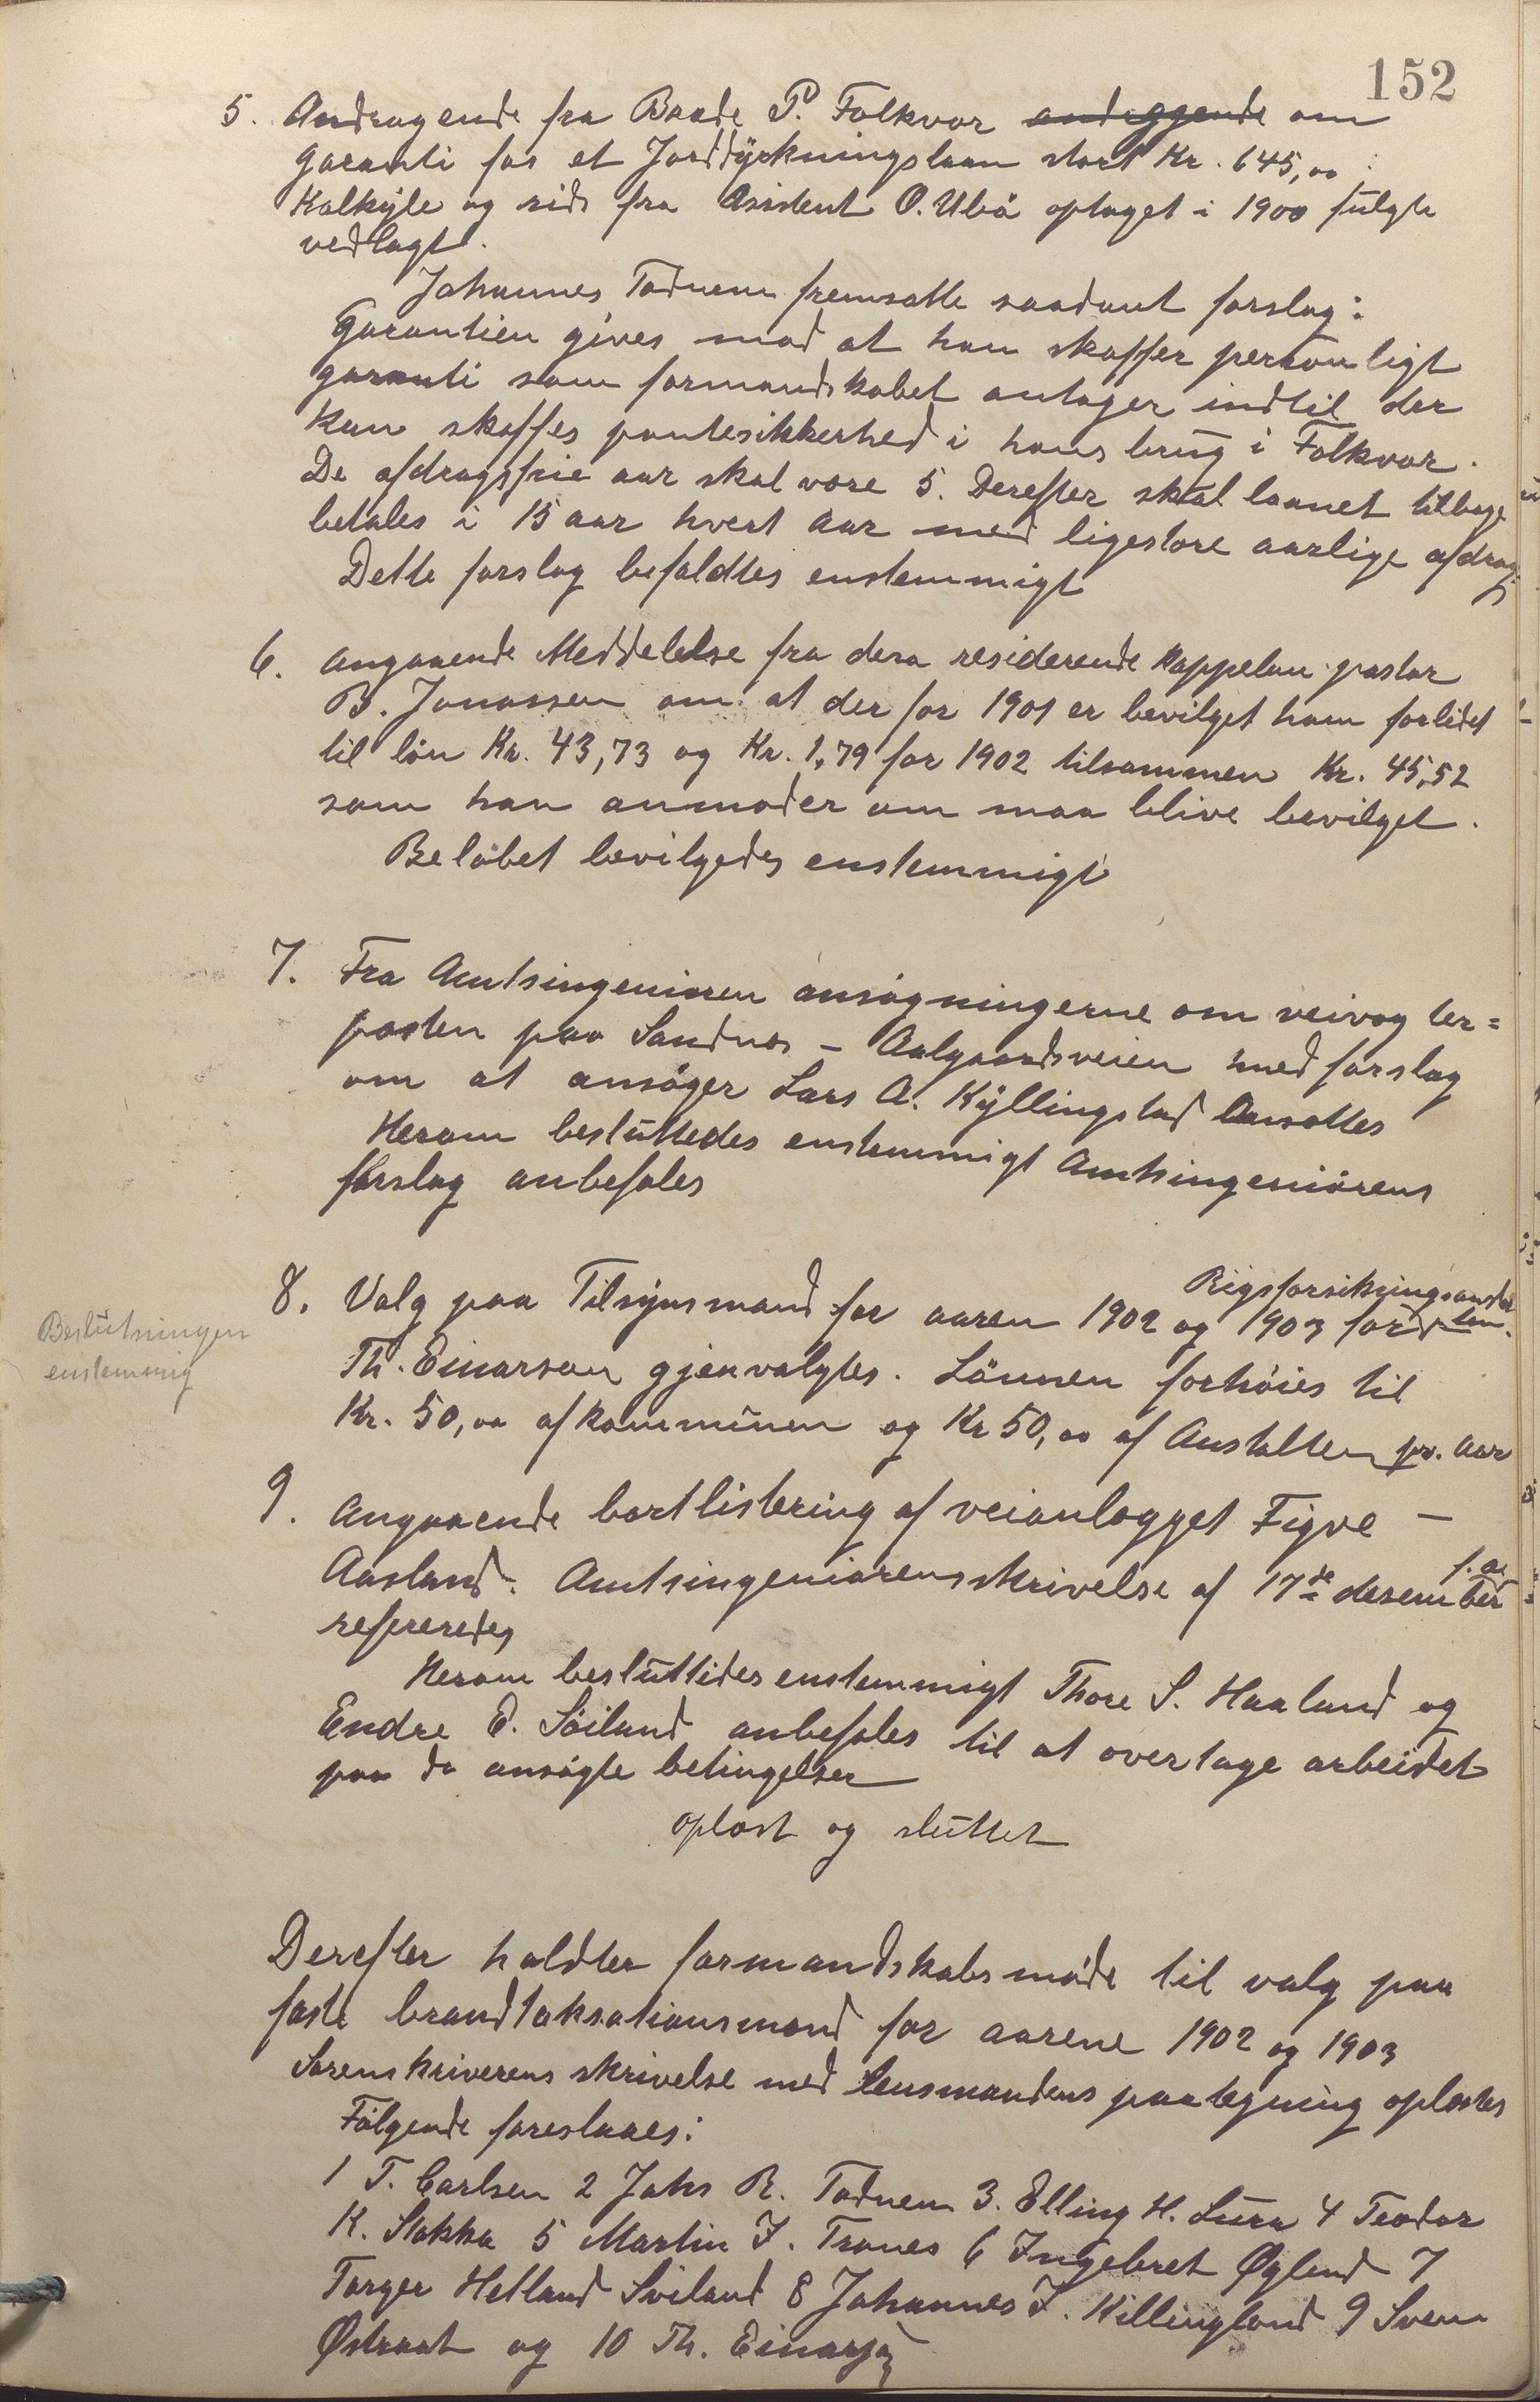 152
5. Andragende fra Baade P. Folkvor andeggende om
garanti for et Jorddyrkningslaan stort Kr. 645,00
Kalkyle og rids fra Asistent O. Ubø optaget i 1900 fulgte
vedlagt.
Johannes Todnem fremsatte saadant forslag:
Garantien gives mod at han skaffer personligt
garanti som formandskabet antager indtil der
kan skaffes pantesikkerhed i hans brug i Folkvor.
De afdragsfrie aar skal være 5. Derefter skal laanet tilbage
betales i 15 aar hvert aar med ligestore aarlige afdrag
Dette forslag befaldtes enstemmigt
6. Angaaende Meddelelse fra den residerende kappelan pastor
B. Jonassen om at der for 1901 er bevilget ham forlidet
til løn Kr. 43,73 og Kr. 1,79 for 1902 tilsammen Kr. 45,52
som han anmoder om maa blive bevilget.
Beløbet bevilgedes enstemmigt
7. Fra Amtsingeniøren ansøgningerne om veivogter=
posten paa Sandnes - Aalgaardsveien med forslag
om at ansøger Lars A. Kyllingstad ansættes
Herom besluttedes enstemmigt Amtsingeniørens
forslag anbefales
8. Valg paa Tilsynsmand for aaren 1902 og 1903 for Rigsforsikringsanstalten.
Beslutningen
enstemmig
Th. Einarsen gjenvalgtes. Lønnen forhøies til
Kr. 50,00 af kommunen og Kr 50,00 af Anstalten pr. aar
9. Angaaende bortlistering af veianlægget Figve -
Aasland. Amtsingeniørens skrivelse af 17de desember f. a.
refereredes
Herom besluttedes enstemmigt Thore S. Haaland og
Endre E. Søiland anbefales til at overtage arbeidet
paa de ansøgte betingelser
oplæst og sluttet
Derefter holdtes formandskabsmøde til valg paa
faste brandtaksationsmænd for aarene 1902 og 1903
Sorenskriverens skrivelse med lensmandens paategning oplæstes
Følgende foreslaaes:
1 T. Carlsen 2 Johs R. Todnem 3. Elling H. Lura 4 Teodor
K. Stokka 5 Martin J. Tranes 6 Ingebret Øglend 7
Torger Hetland Sviland 8 Johannes J. Killingland 9 Svem
Østraat og 10 Th. Einarsen